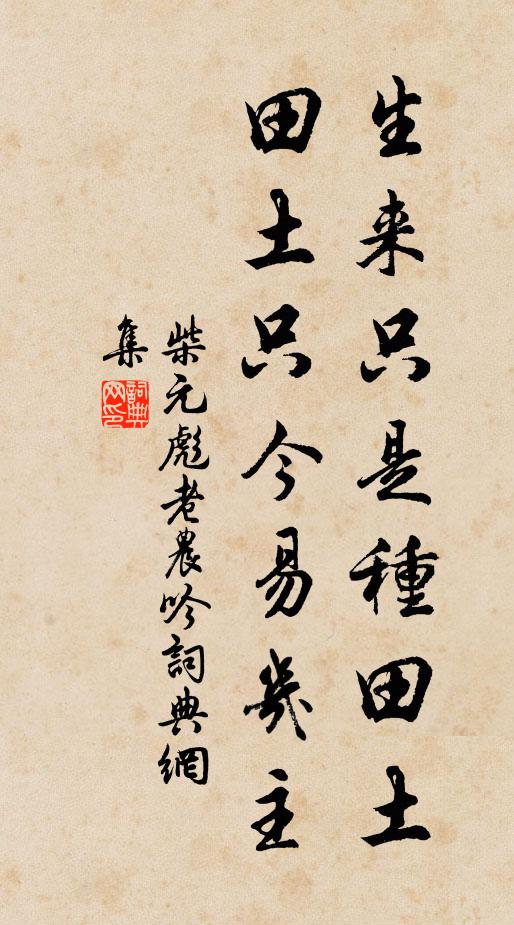 生来只是種田土
田土只今易幾主
柴元彪老農吟詞典網
集
詞典
网印